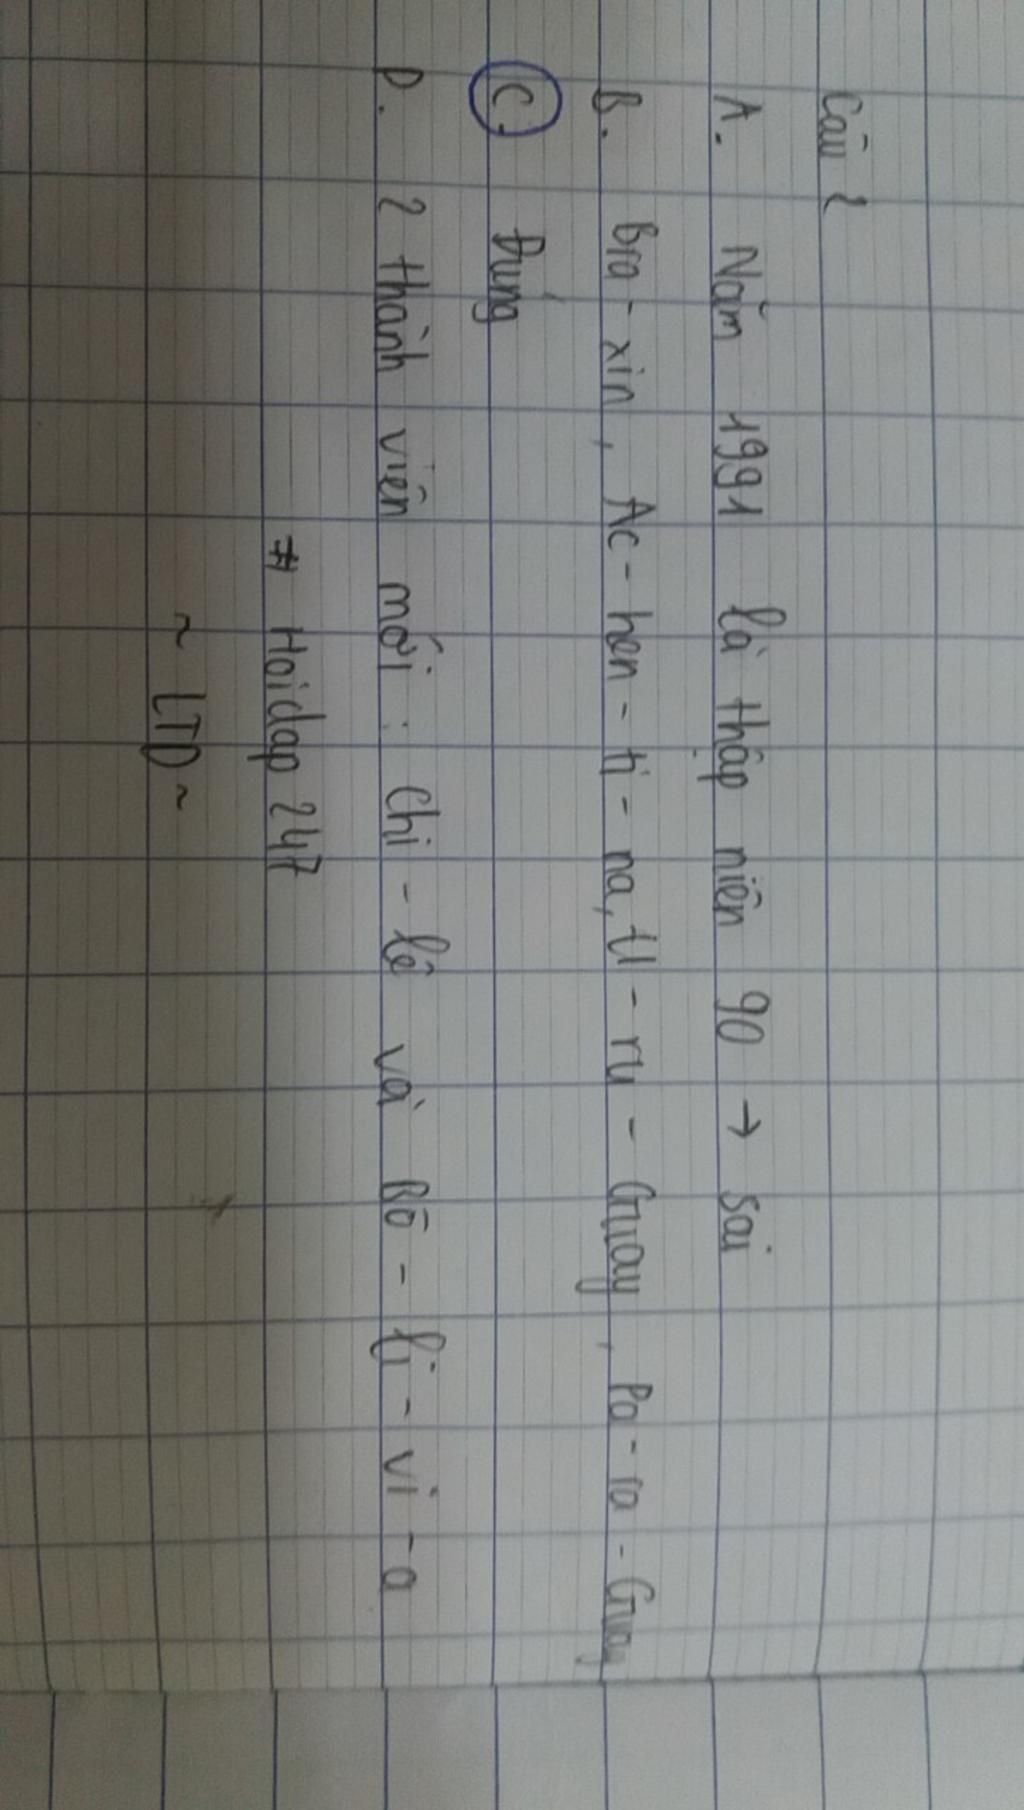 Câu 2
A. Năm 1991 là thập niên 90 → sai
B. Bra-xin, Ac-hen-ti-na, U-ru-Guay, Pa-ra-Guay
C. Đúng
D. 2 thành viên mới: Chi-lê và Bô-li-vi-a
# Hoidap 247
~ LTD ~